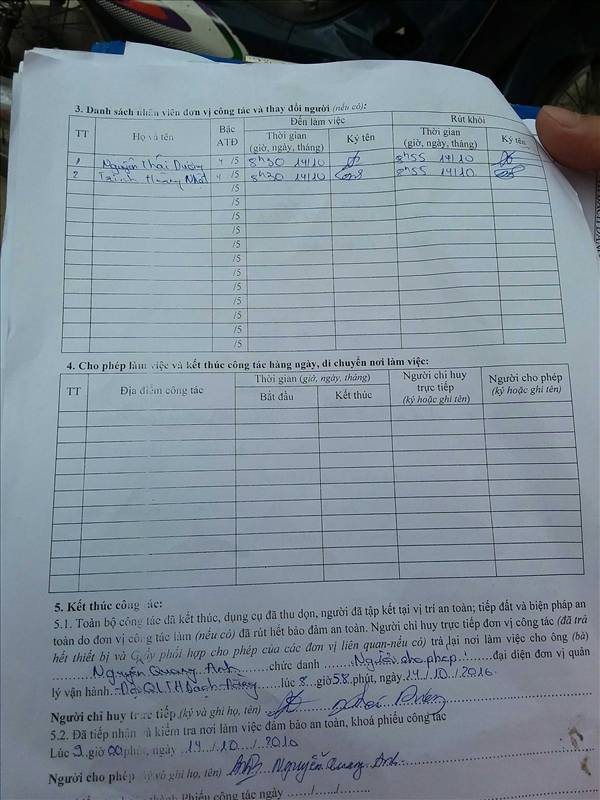 3. Danh sách nhân viên đơn vị công tác và thay đổi người (nếu có):
TT Họ và tên Bậc ATĐ Đến làm việc Rút khỏi
Thời gian (giờ, ngày, tháng) Ký tên Thời gian (giờ, ngày, tháng) Ký tên
1 Nguyễn Thái Dương 4 /5 8h30 14/10 8h55 14/10
2 Trịnh Hoàng Nhất 4 /5 8h30 14/10 8h55 14/10
/5
/5
/5
/5
/5
/5
/5
/5
/5
/5
/5
/5
4. Cho phép làm việc và kết thúc công tác hàng ngày, di chuyển nơi làm việc:
TT Địa điểm công tác Thời gian (giờ, ngày, tháng) Người chỉ huy trực tiếp (ký hoặc ghi tên) Người cho phép (ký hoặc ghi tên)
Bắt đầu Kết thúc
5. Kết thúc công tác:
5.1. Toàn bộ công tác đã kết thúc, dụng cụ đã thu dọn, người đã tập kết tại vị trí an toàn; tiếp đất và biện pháp an
toàn do đơn vị công tác làm (nếu có) đã rút hết bảo đảm an toàn. Người chỉ huy trực tiếp đơn vị công tác (đã trả
hết thiết bị và Giấy phối hợp cho phép của các đơn vị liên quan-nếu có) trả lại nơi làm việc cho ông (bà)
Nguyễn Quang Anh chức danh Người cho phép đại diện đơn vị quản
lý vận hành Đội QLTH lúc 8 giờ 58 phút, ngày 14/10/2016
Người chỉ huy trực tiếp (ký và ghi họ, tên) Thái Dương
5.2. Đã tiếp nhận và kiểm tra nơi làm việc đảm bảo an toàn, khoá phiếu công tác
Lúc 9 giờ 00 phút, ngày 14/10/2016
Người cho phép (ký và ghi họ, tên) Anh Nguyễn Quang Anh
thành Phiếu công tác ngày ....../....../......